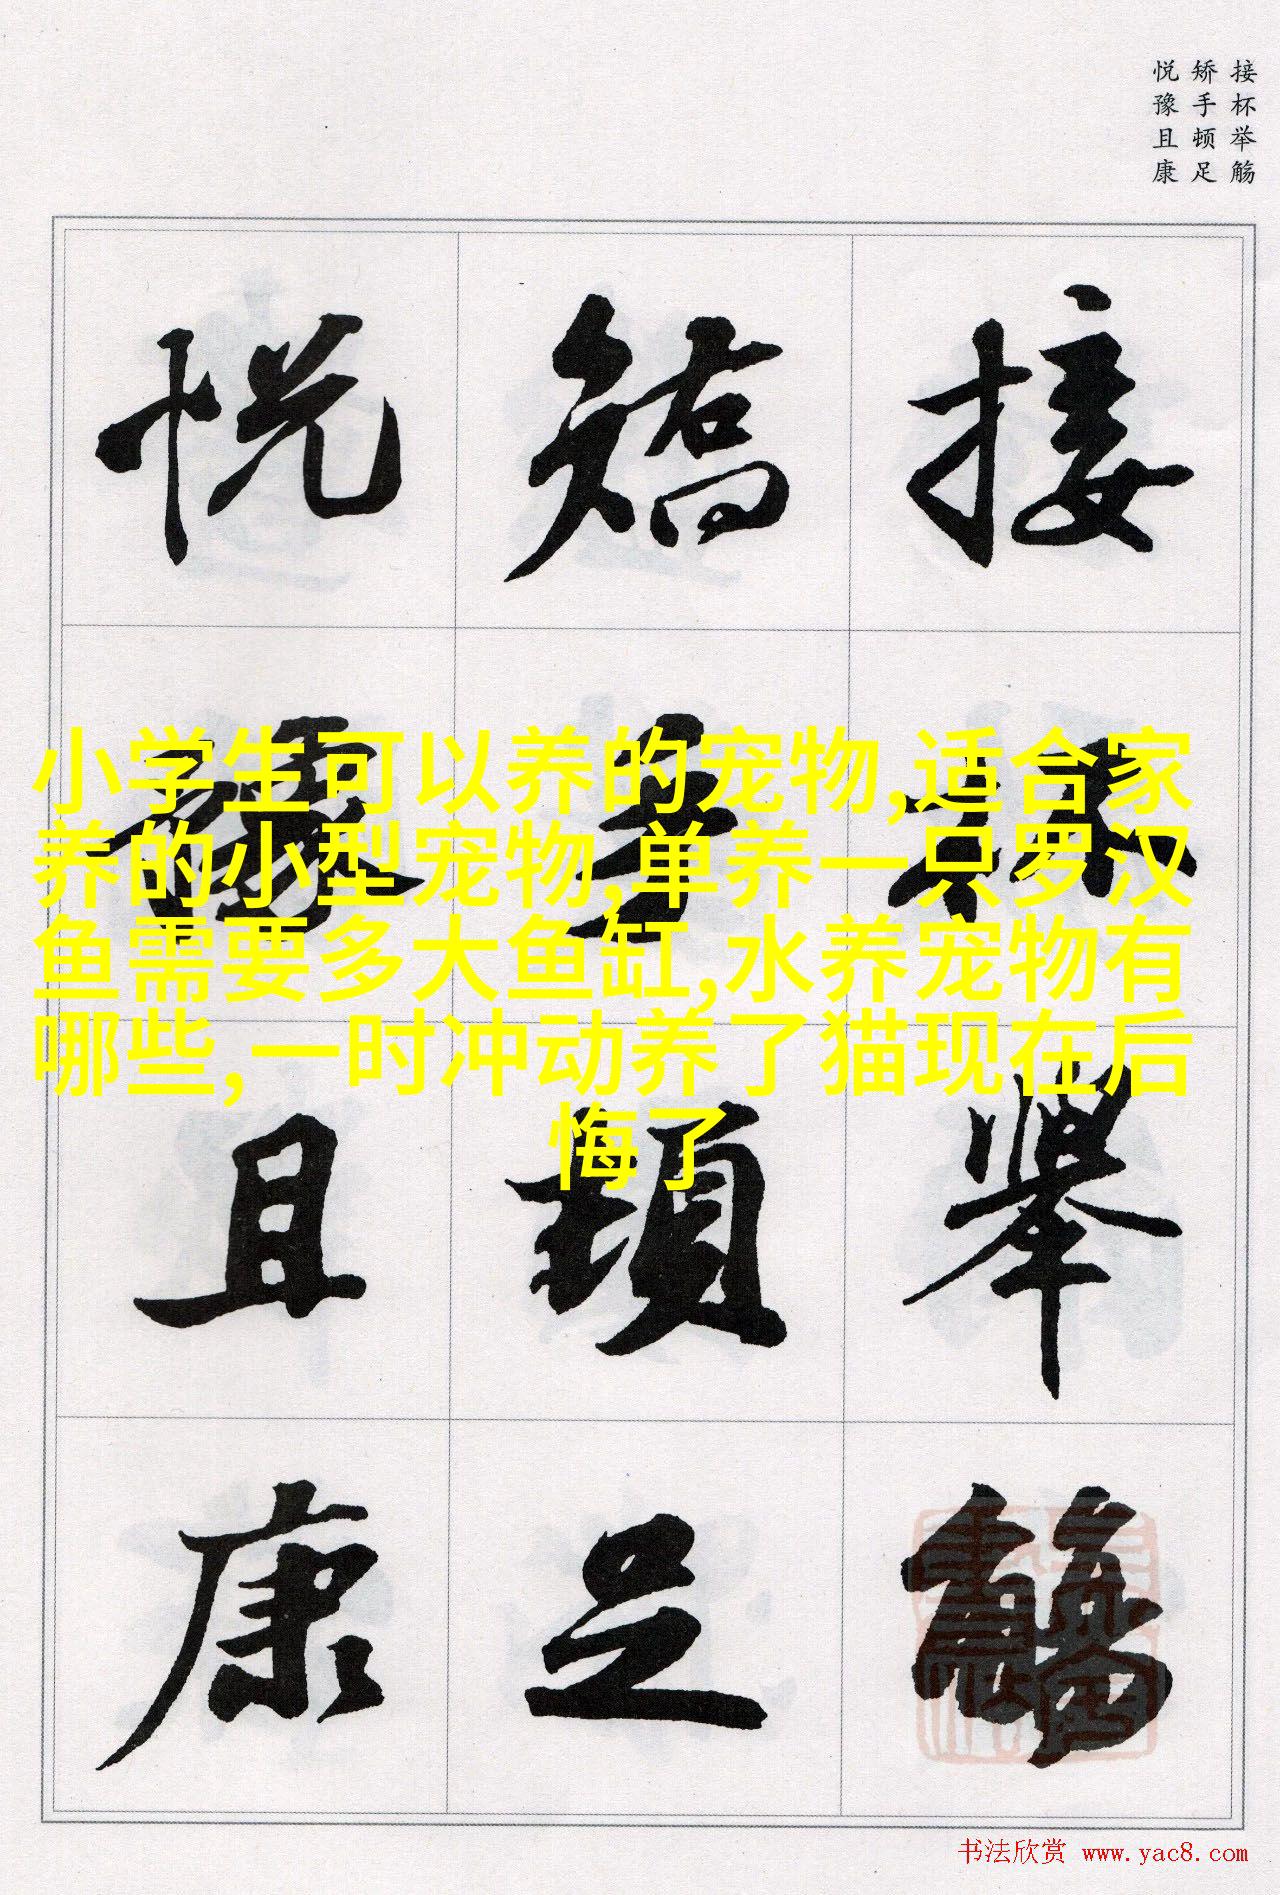 接杯举觞
矫手顿足
悦豫且康
接杯举觞
矫手顿足
悦豫且康
小学生可以养的宠物,适合家
养的小型宠物,单养一只罗汉
鱼需要多大鱼缸,水养宠物有
哪些,一时冲动养了猫现在后
悔了
书法欣赏 www.yac8.com